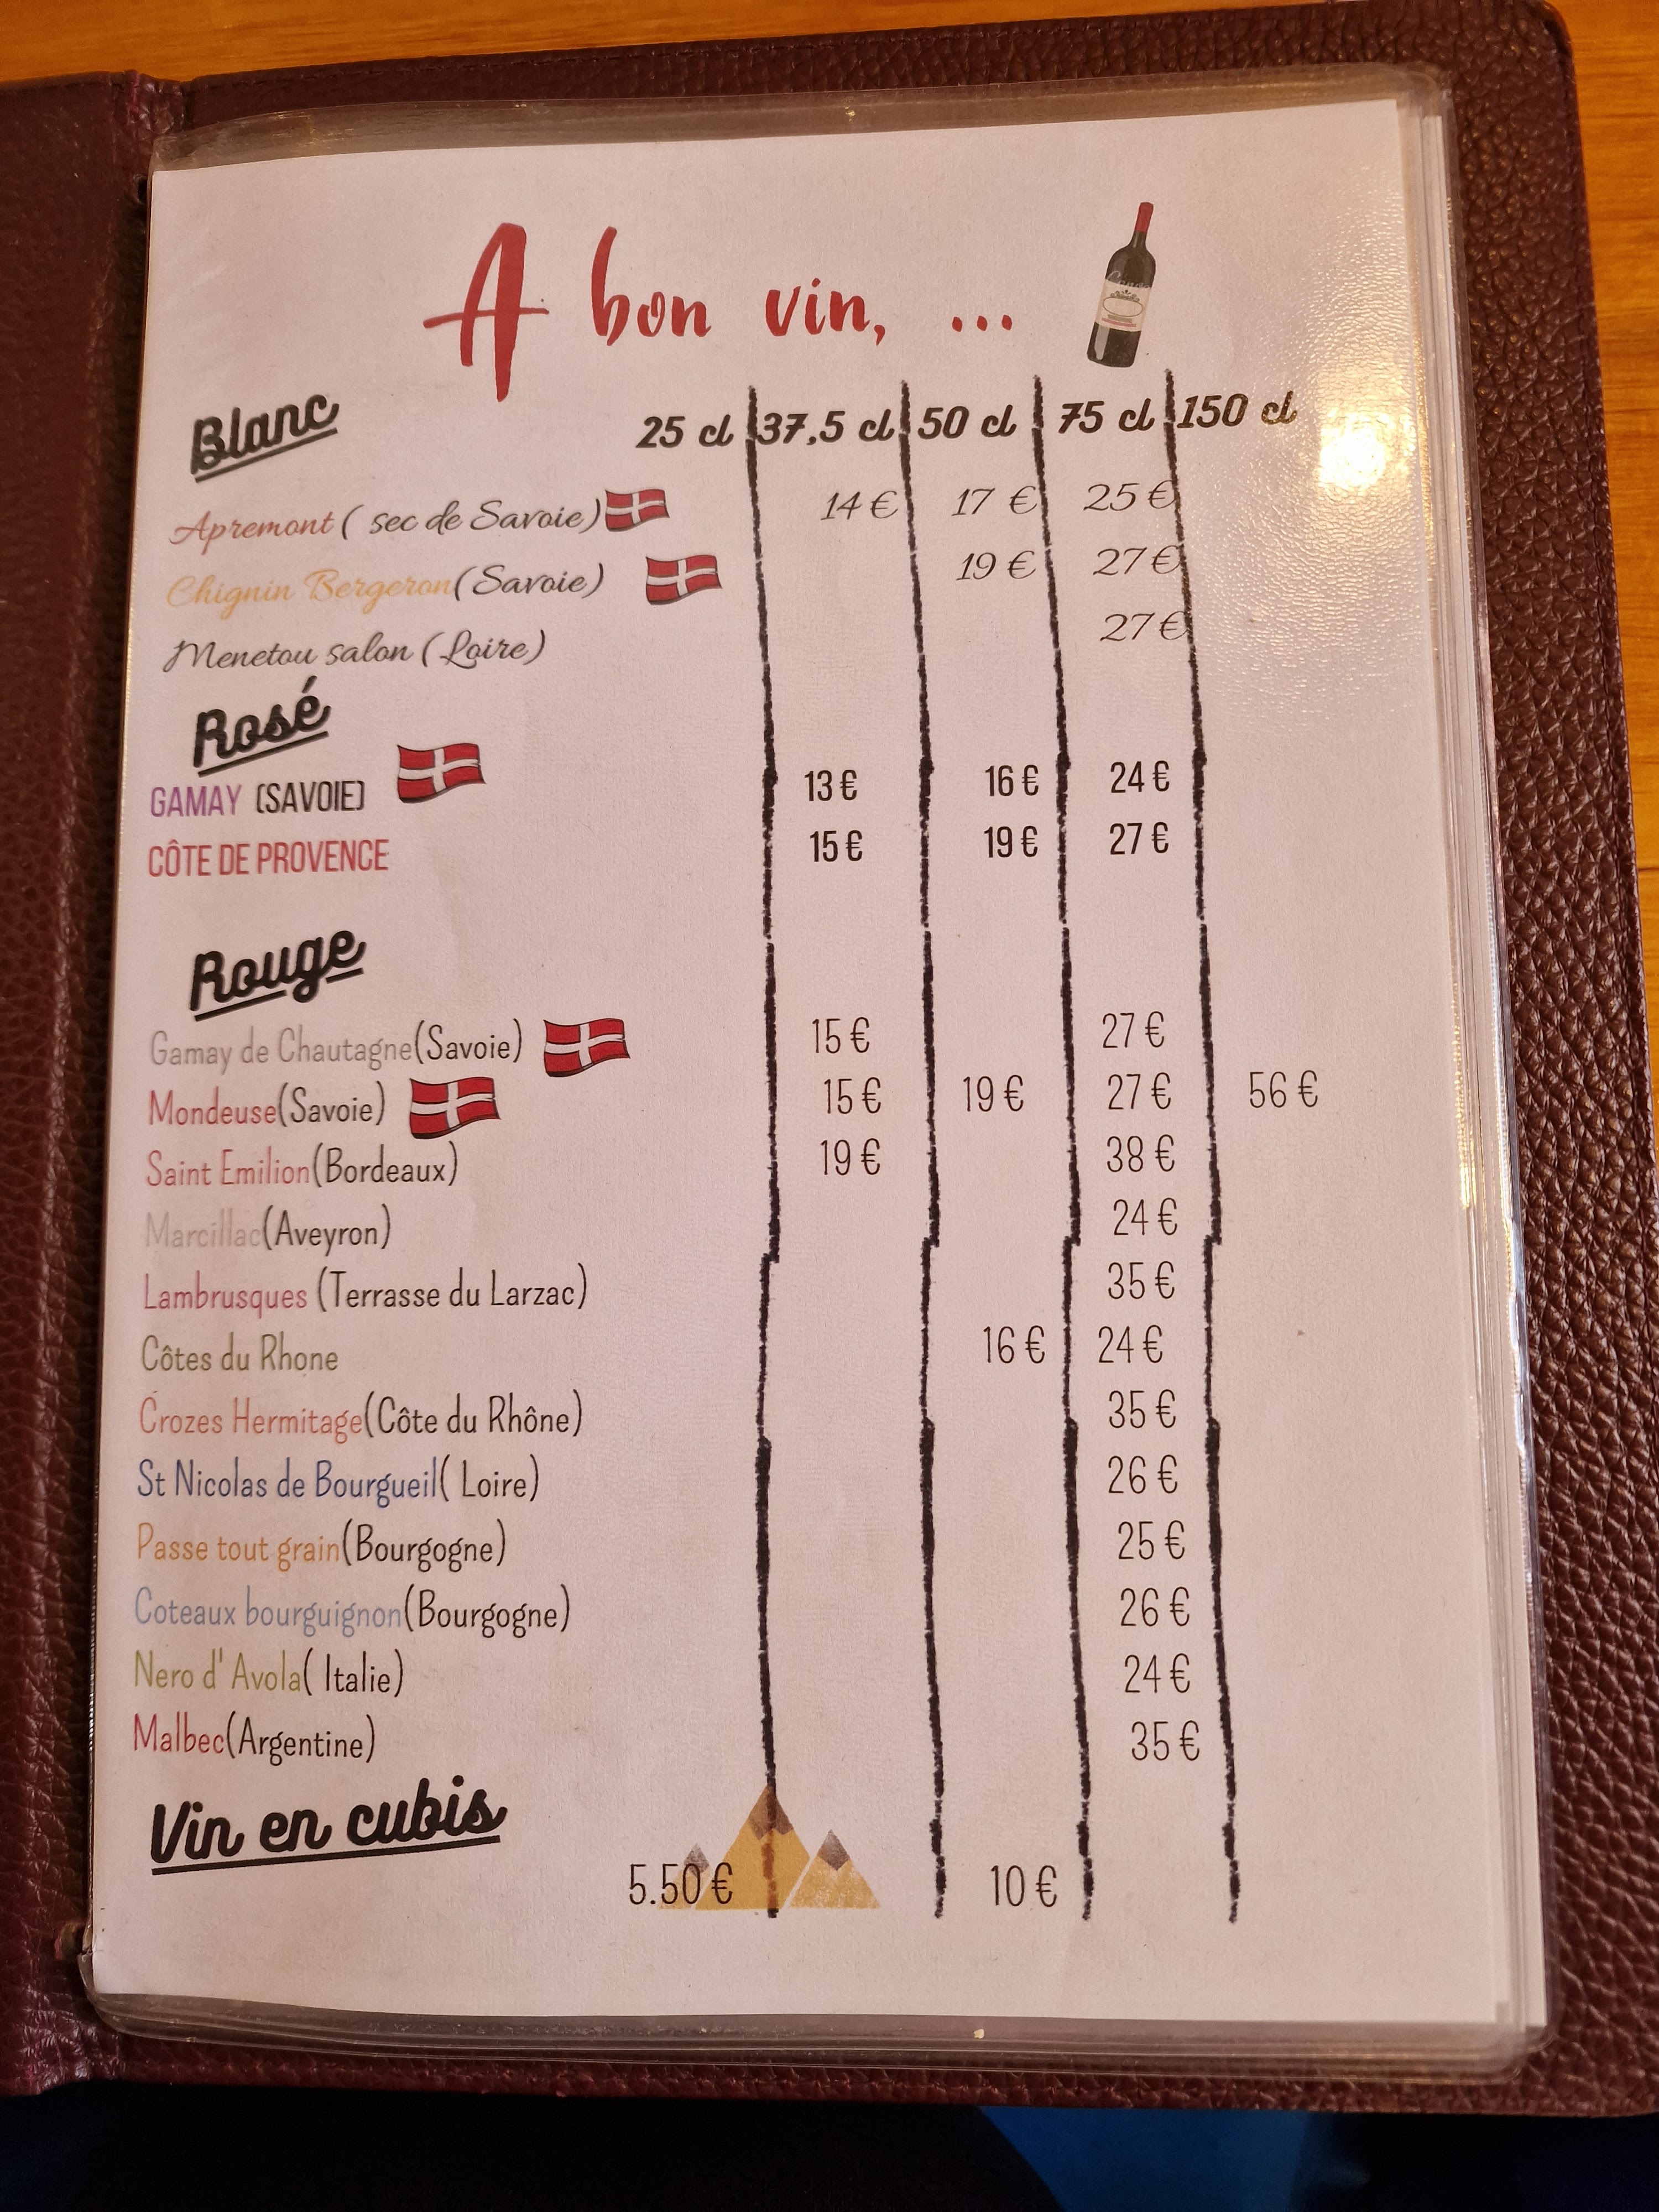 A bon vin, ...
Blanc 25 cl 37.5 cl 50 cl 75 cl 150 cl
Apremont ( sec de Savoie) 14 € 17 € 25 €
Chignin Bergeron (Savoie) 19 € 27 €
Menetou salon (Loire) 27 €
Rosé
GAMAY (SAVOIE) 13 € 16 € 24 €
CÔTE DE PROVENCE 15 € 19 € 27 €
Rouge
Gamay de Chautagne(Savoie) 15 € 27 €
Mondeuse(Savoie) 15 € 19 € 27 € 56 €
Saint Emilion(Bordeaux) 19 € 38 €
Marcillac(Aveyron) 24 €
Lambrusques (Terrasse du Larzac) 35 €
Côtes du Rhone 16 € 24 €
Crozes Hermitage(Côte du Rhône) 35 €
St Nicolas de Bourgueil( Loire) 26 €
Passe tout grain(Bourgogne) 25 €
Coteaux bourguignon(Bourgogne) 26 €
Nero d' Avola( Italie) 24 €
Malbec(Argentine) 35 €
Vin en cubis
5.50 € 10 €